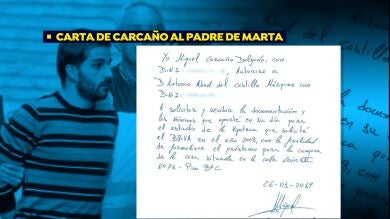 CARTA DE CARCAÑO AL PADRE DE MARTA
Yo Miguel Carcaño Delgado, con
D.N.I.: , Autorizo a
D. Antonio Abad del Castillo Márquez con
D.N.I.:
A solicitar y recibir la documentación y
los mismos que aporté en su día para el
estudio de la Hipoteca que solicité
BBVA en el año 2004, con la finalidad
de formalizar el préstamo para la compra
de la casa situada en la calle León XIII
Nº - Piso BºC
26-01-2019
Miguel